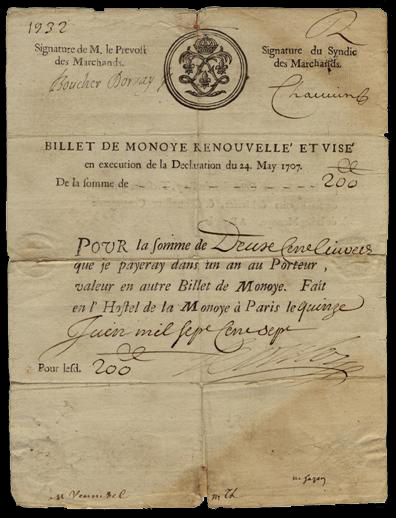 1932
R
Signature de M. le Prevost
des Marchands.
Signature du Syndic
des Marchands.
Boucher Dorsay
BILLET DE MONOYE RENOUVELLE' ET VISE'
en execution de la Declaration du 24. May 1707.
De la somme de 200
POUR la somme de Deux Cent Livres
que je payeray dans un an au Porteur,
valeur en autre Billet de Monoye. Fait
en l'Hostel de la Monoye à Paris le quinze
Juin mil sept Cent Sept
Pour lesd. 200